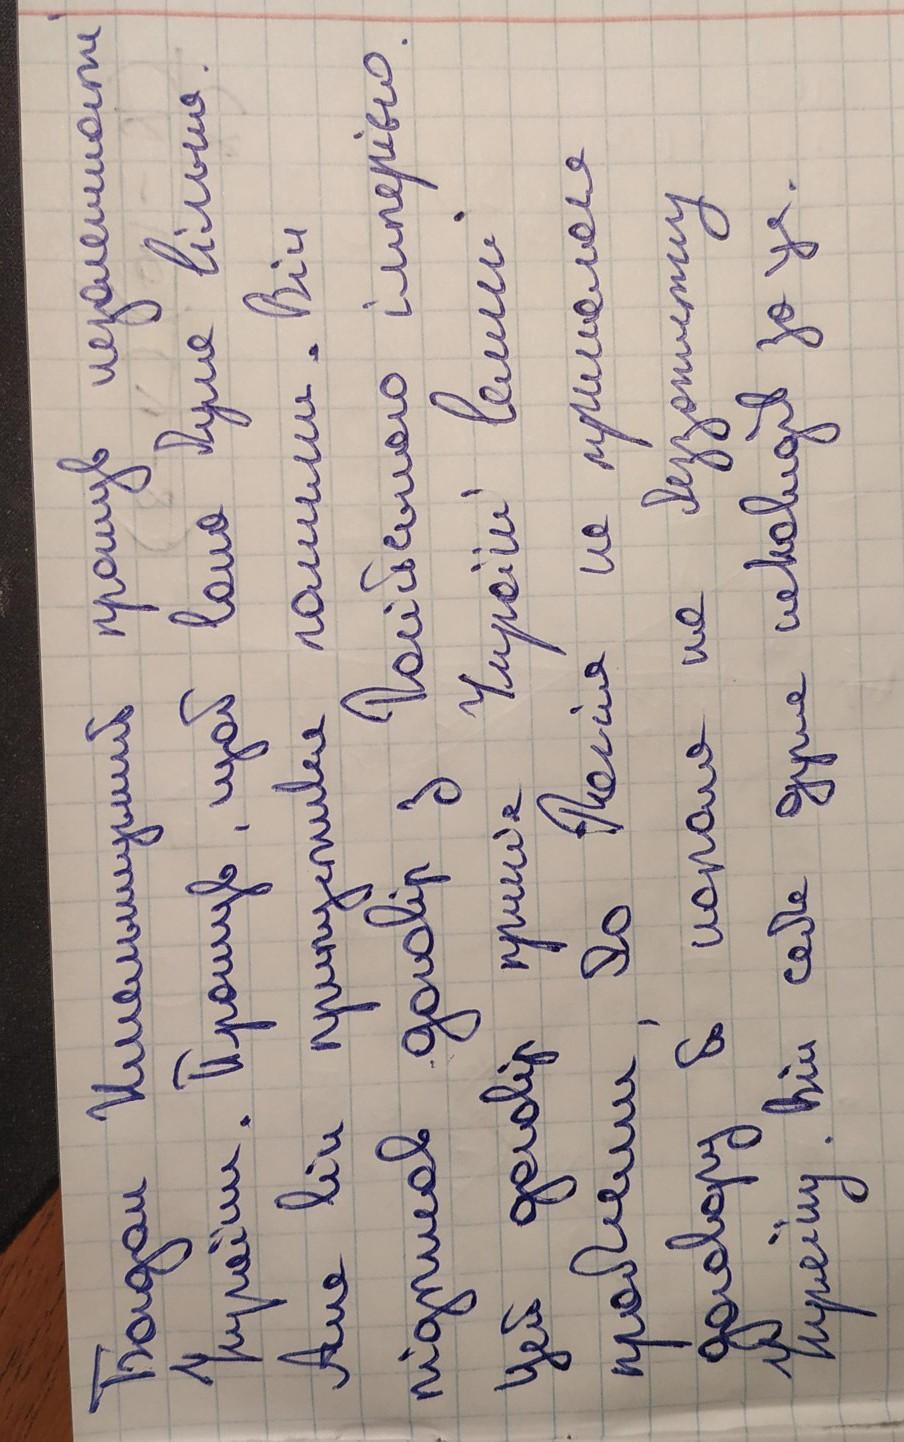 Богдан Хмельницький працув незалежності
України. Працув, щоб вона була вільна.
Але він припустився помилки. Він
підписав договір з Російською імперією.
Цей договір приніс Україні великі
проблеми, бо Росія не тримала
договору й напала на беззахисну
Україну. Він себе дуже ненавидів за це.